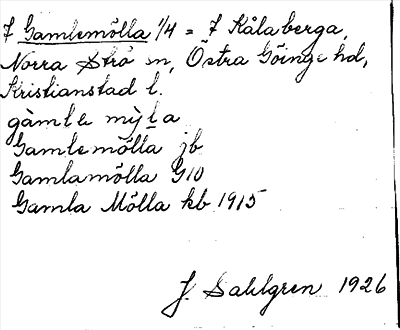 7 Gamlemölla 1/4 = 7 Kålaberga,
Norra Strö sn, Östra Göinge hd,
Kristianstad l.
gàmle mỳla
Gamlemölla jb
Gamlamölla G10
Gamla Mölla kb 1915
J. Sahlgren 1926